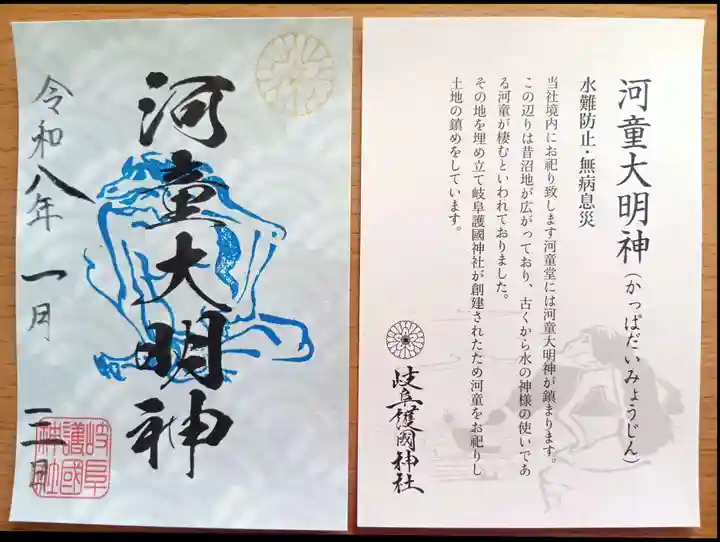 河童大明神
令和八年 一月 三日
岐阜
護國
神社
河童大明神(かっぱだいみょうじん)
水難防止・無病息災
当社境内にお祀り致します河童堂には河童大明神が鎮まります。
この辺りは昔沼地が広がっており、古くから水の神様の使いであ
る河童が棲むといわれておりました。
その地を埋め立て岐阜護國神社が創建されたため河童をお祀りし
土地の鎮めをしています。
岐阜護國神社